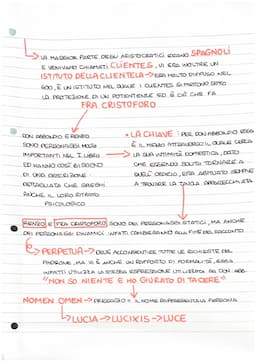 LA MAGGIOR PARTE DEGLI ARISTOCRATICI ERANO SPAGNOLI
E VENIVANO CHIAMATI CLIENTES, VI ERA INOLTRE UN
ISTITUTO DELLA CLIENTELA → ERA MOLTO DIFFUSO NEL
600, È UN ISTITUTO NEL QUALE I CLIENTES SI METTONO SOTTO
LA PROTEZIONE DI UN POTENTE ED È CIÒ CHE FA
FRA CRISTOFORO
DON ABBONDIO E RENZO
SONO PERSONAGGI MOLTO
IMPORTANTI NEL I LIBRO
ED HANNO COSÌ BISOGNO
DI UNA DESCRIZIONE
DETTAGLIATA CHE SVEGHI
ANCHE IL LORO RITRATTO
PSICOLOGICO
• LA CHIAVE: PER DON ABBONDIO ESSA
È IL MEZZO ATTRAVERSO IL QUALE CERCA
LA SUA INTIMITÀ DOMESTICA, DATO
CHE ESSENDO SOLITO TORNARE A
QUELL' ORARIO, ERA ABITUATO SEMPRE
A TROVARE LA TAVOLA APPARECCHIATA
RENZO E FRA CRISTOFORO SONO DEI PERSONAGGI STATICI, MA ANCHE
DEI PERSONAGGI DINAMICI. INFATTI CAMBIERANNO ALLA FINE DEL RACCONTO
→ PERPETUA → DEVE ACCONSENTIRE TUTTE LE RICHIESTE DEL
PADRONE, MA VI È ANCHE UN RAPPORTO DI FORMALITÀ, ESSA
INFATTI UTILIZZA LA STESSA ESPRESSIONE UTILIZZATA DA DON ABB.
"NON SO NIENTE E HO GIURATO DI TACERE"
NOMEN OMEN → PRESAGIO → IL NOME RAPPRESENTA LA PERSONA
→ LUCIA → LUCIXIS → LUCE